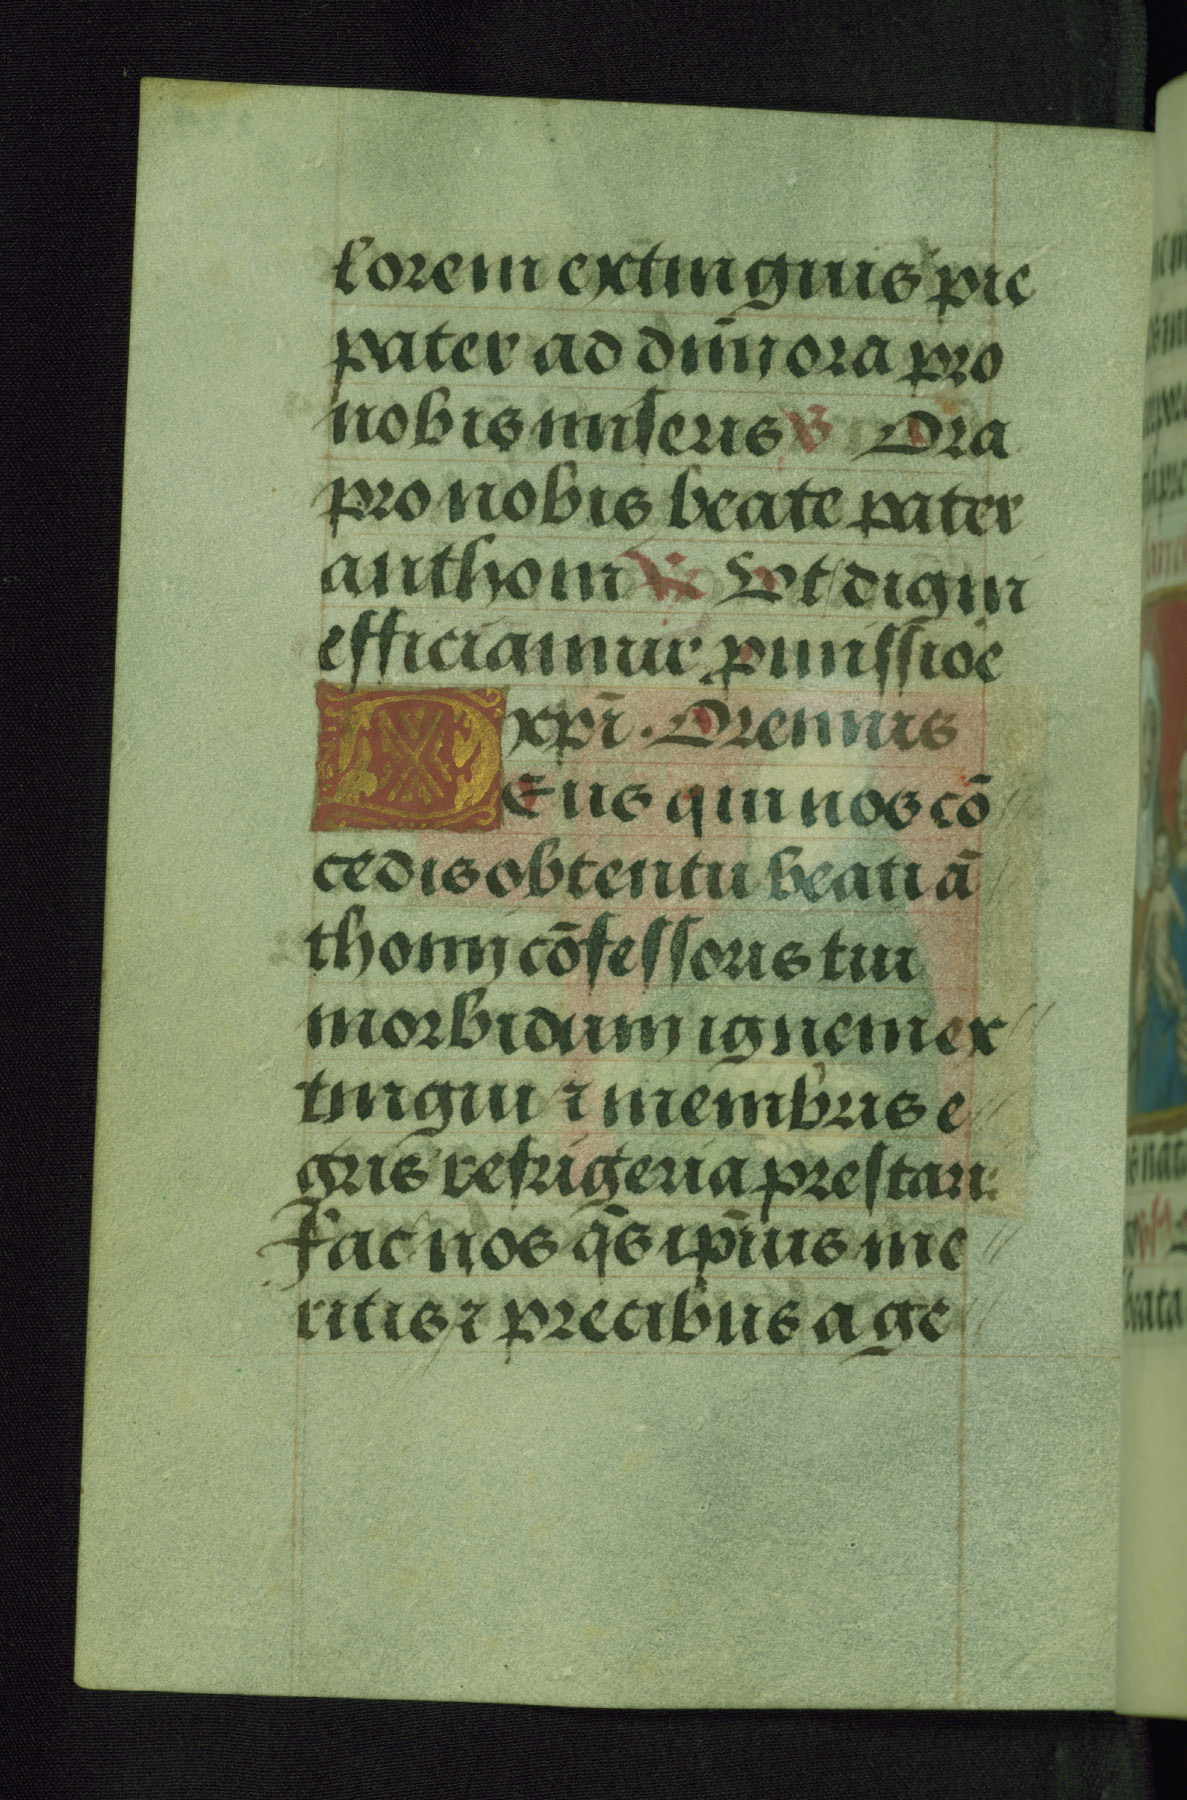 lorem extinguis pie
pater ad dn̄m ora pro
nobis miseris ℣ Ora
pro nobis beate pater
anthoni ℟ Vt digni
efficiamur p̱missioē
xp̄i. Oremus
Deus qui nos cō
cedis obtentu beati ā
thonij cōfessoris tui
morbidum ignem ex
tingui ⁊ membris e
gris refrigeria prestari
fac nos q̄s ip̄ius me
ritis ⁊ precibus a ge